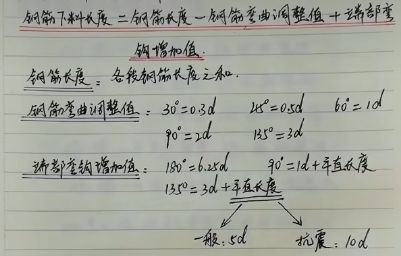 钢筋下料长度 = 钢筋长度 - 钢筋弯曲调整值 + 端部弯
钩增加值.
钢筋长度: 各段钢筋长度之和.
钢筋弯曲调整值: 30°=0.3d 45°=0.5d 60°=1d
90°=2d 135°=3d
端部弯钩增加值: 180°=6.25d 90°=1d+平直长度
135°=3d+平直长度
一般: 5d 抗震: 10d